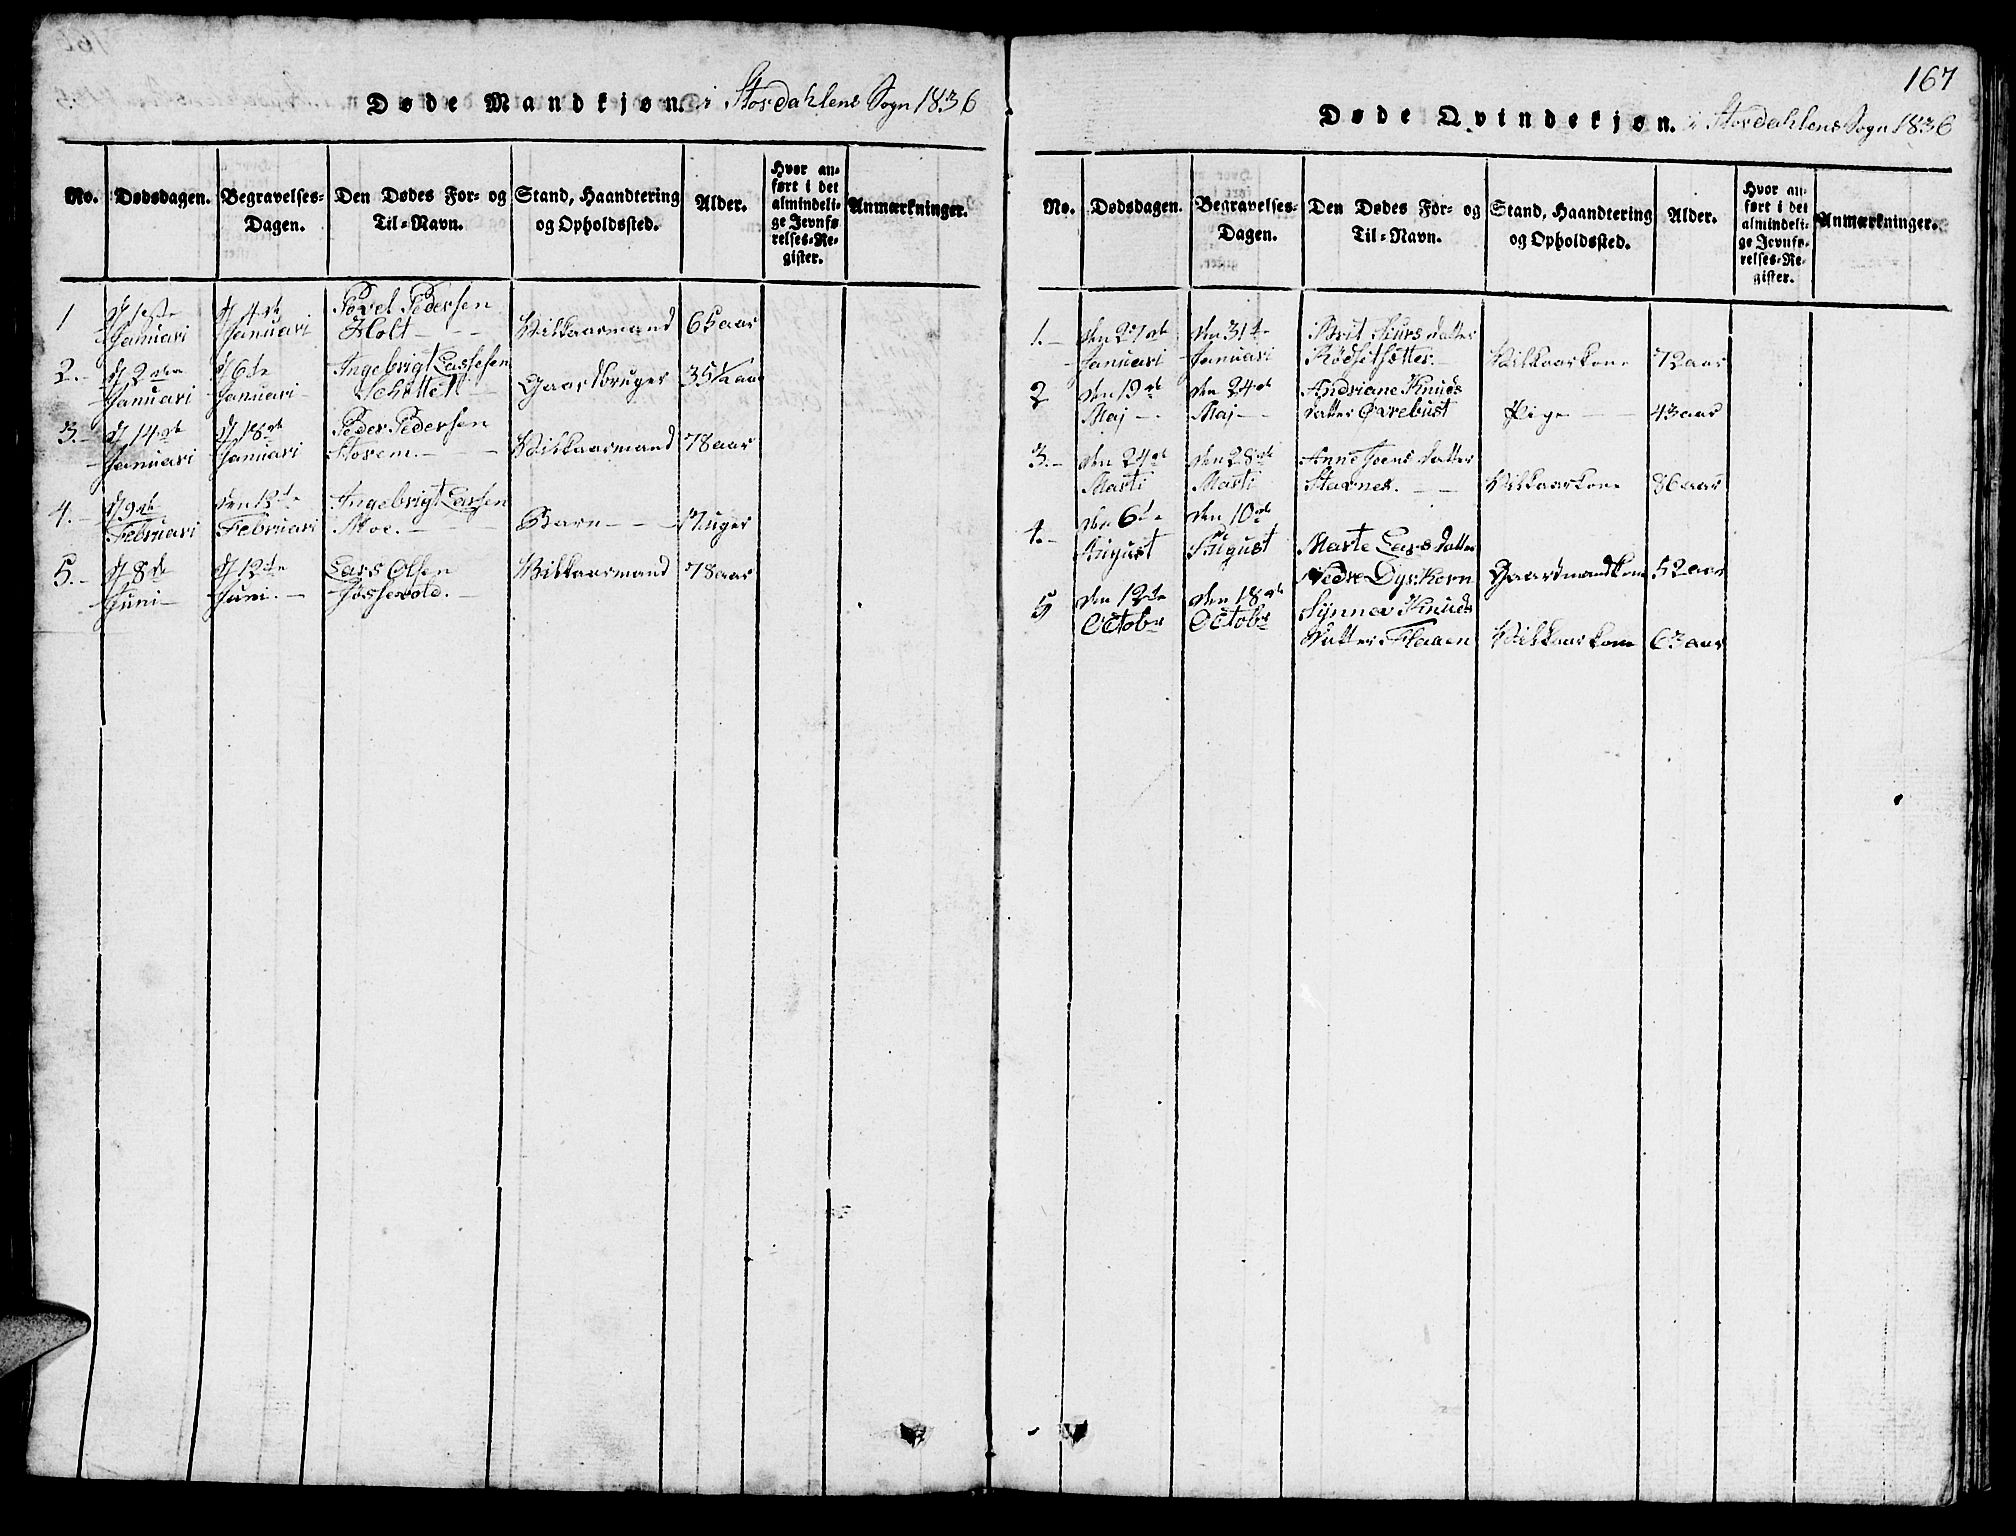 Døde Mandkjøn. i Stordahlens Sogn 1836
No. Dødsdagen. Begravelses-Dagen. Den Dødes For- og Til-Navn. Stand, Haandtering og Opholdssted. Alder. Hvor anført i det almindelige Jevnførelses-Register. Anmærkninger.
1 d 1ste d 4de Povel Pedersen
Januari Januari Holt - - Vilkaarmand 65 aar
2. d 2den d 6te Ingebrigt Lassesen
Januari Januari Gaardbruger
3. d 14de d 18de Peder Pedersen
Januari Januari Storem. - - Vilkaarmand 78 aar
4. d 9de den 13de Ingebrigt Lassen
Februari Februari Moe. - Barn - - uger
5. d 8de d 12te Lars Olsen Vilkaarmand 78 aar
Juni Juni. -
167
Døde Qvindekjøn. i Stordahlens Sogn 1836
No. Dødsdagen. Begravelses-Dagen. Den Dødes For- og Til-Navn. Stand, Haandtering og Opholdssted. Alder. Hvor anført i det almindelige Jevnførelses-Register. Anmærkninger.
1. den 27de den 31te Brit Siurs datter
Januari Januari Vilkaarkone 72 aar
2 den 19de den 24de Andriane Knuds
Maj - Maj - datter Øvrebust Pige 43 aar
3. den 24de den 28de Anne Joens datter
Marti Marti Stavnes. - - Vilkaarkone 86 aar
4. den 6te den 10de
August August Marte Lars datter
Nedre Dyrkorn Gaardmandkone 52 aar
5 den 12te den 18de Synnev Knuds
Octobr Octobr datter Flaaen Vilkaarkone 63 aar